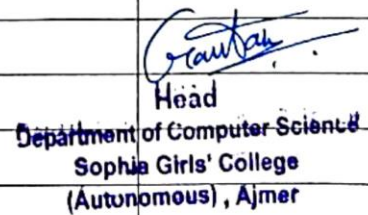 Head
Department of Computer Science
Sophia Girls' College
(Autonomous) , Ajmer